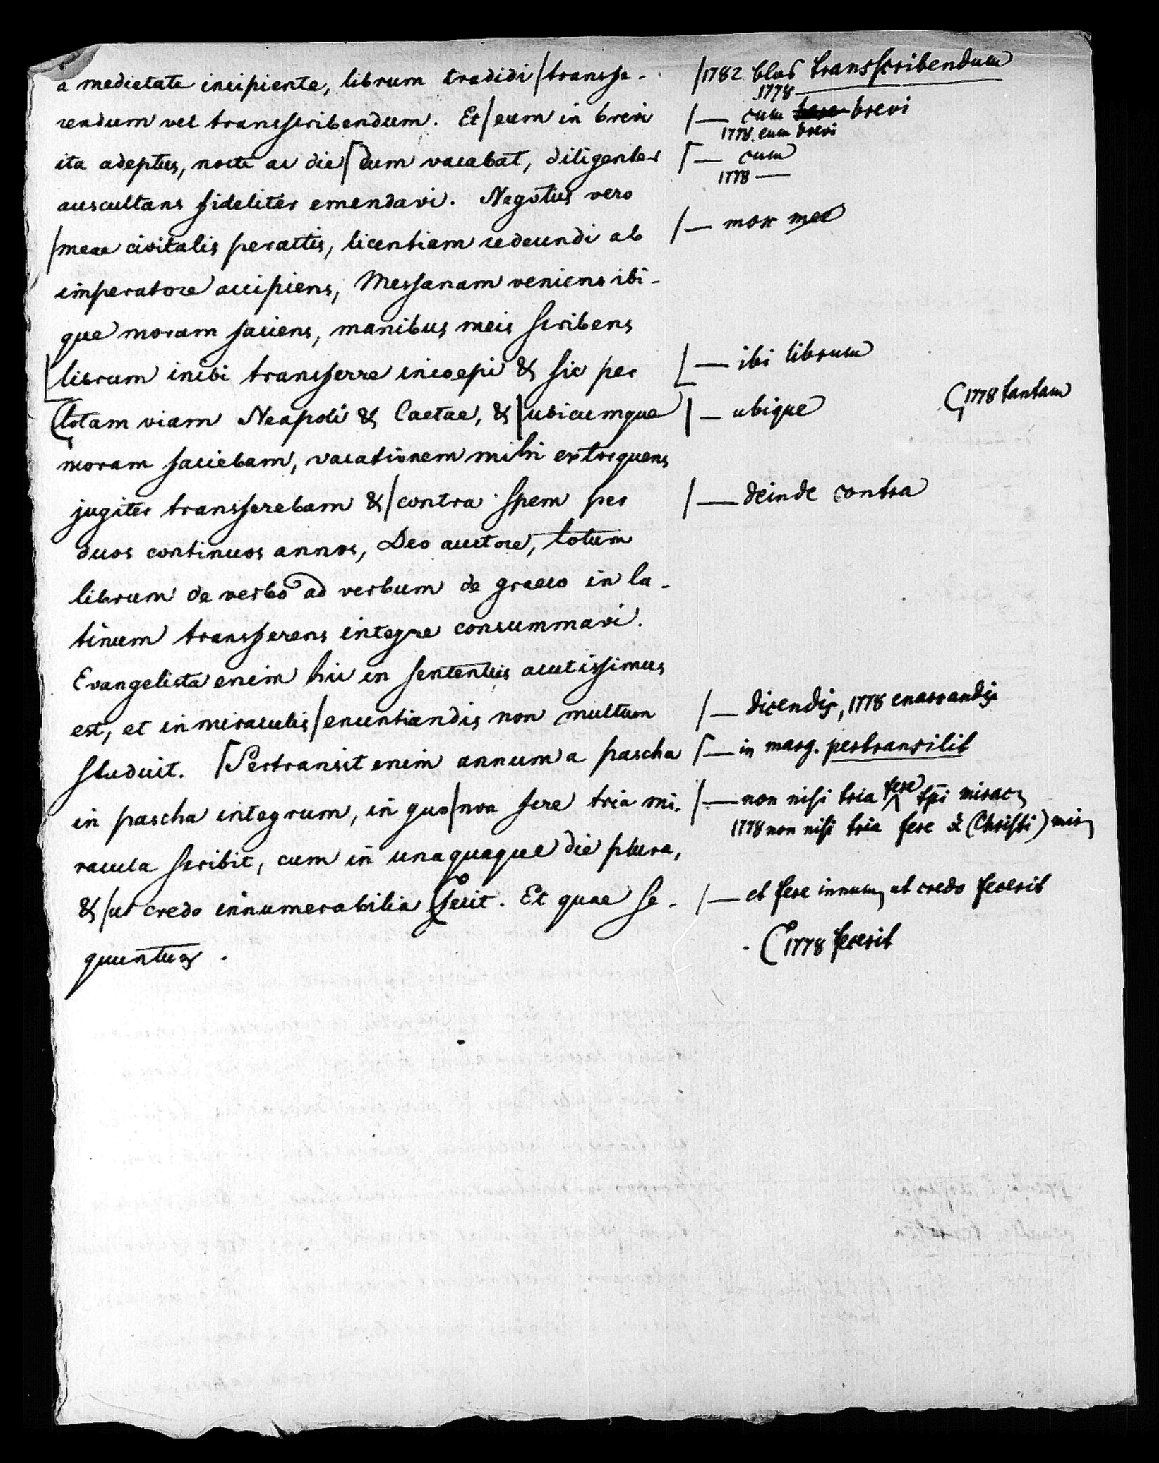 a medietate incipiente, librum tradidi/transfe- /1782 transscribendum
1778 —
rendum vel transscribendum. Et/eum in brevi /— cum brevi
1778. eum brevi
ita adeptus, nocte ac die⌈dum vacabat, diligenter ⌈— cum
1778 —
auscultans fideliter emendavi. Negotiis vero
/meae civitatis peractis, licentiam redeundi ab /— mox
imperatore accipiens, Messanam veniens ibi-
que moram faciens, manibus meis scribens
librum inibi transferre incoepi & sic per — ibi librum
(totam viam Neapoli & Caetae, &/ubicumque /— ubique ( 1778 tantam
moram faciebam, vacationem mihi extorquens
jugiter transferebam &/contra spem per /— deinde contra
duos continuos annos, Deo auctore, totum
librum de verbo ad verbum de graeco in la-
tinum transferens integre consummavi.
Evangelista enim hic in sententiis acutissimus
est, et in miraculis/enuntiandis non multum /— dicendis, 1778 enarrandis
studuit. ⌈Pertransit enim annum a pascha ⌈— in marg. pertransilit
in pascha integrum, in quo/non fere tria mi- /— non nisi tria fere
1778 non nisi tria fere (Christi)
racula scribit, cum in unaquaque die plura,
&/ut credo innumerabilia (fecit. Et quae se- /— et fere innum ut credo fecerit
quuntur. ( 1778 fecerit